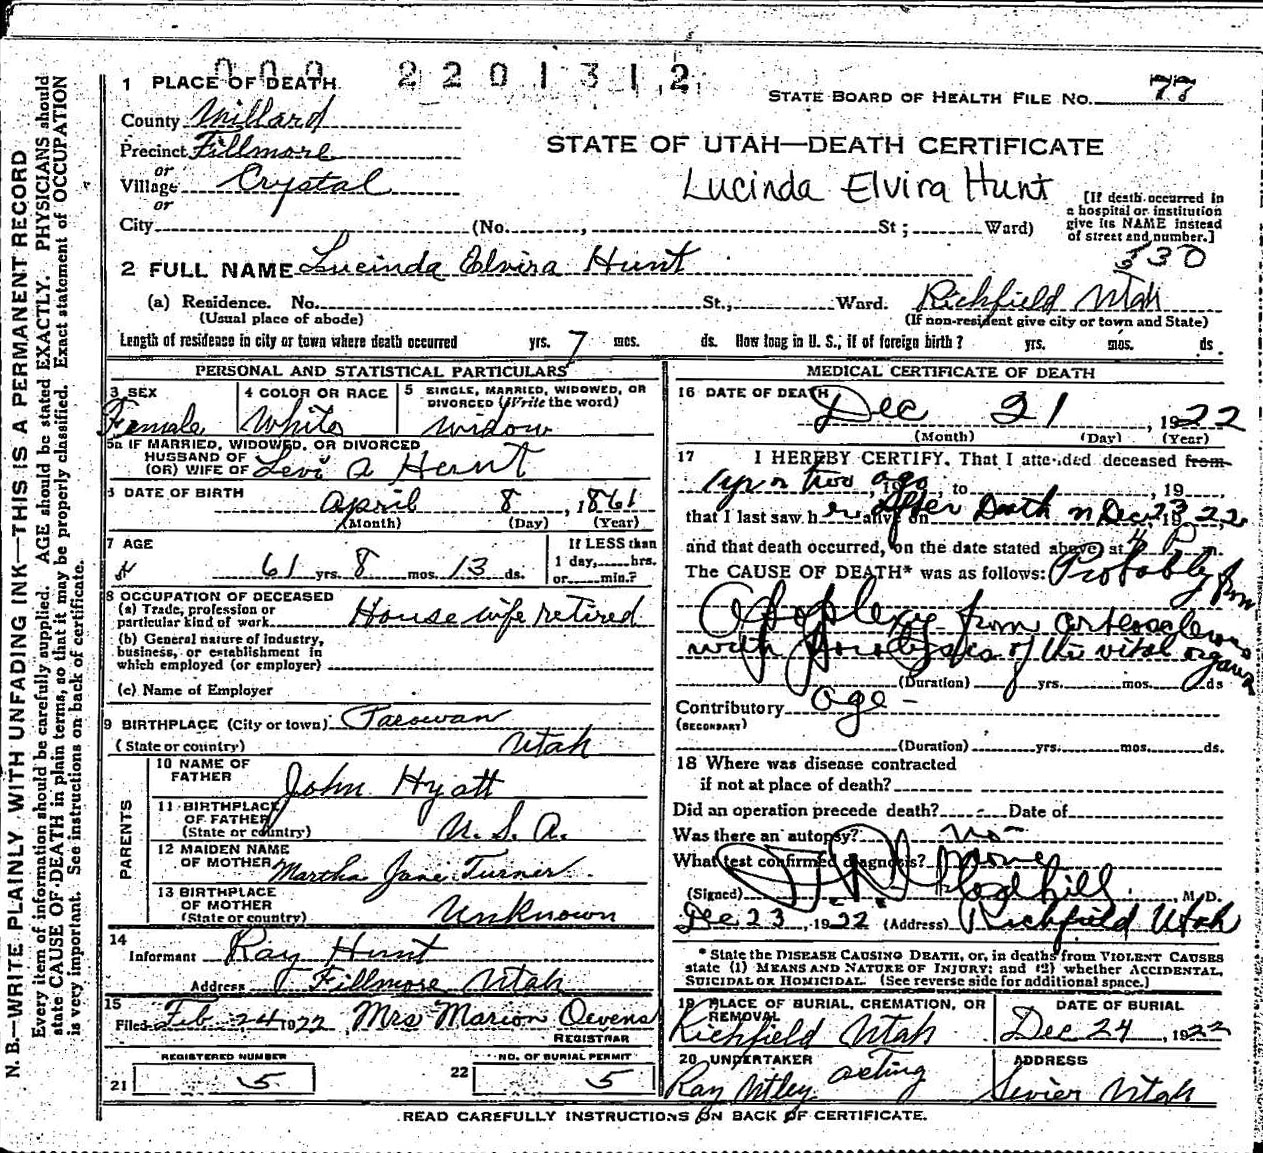 N. B.—WRITE PLAINLY, WITH UNFADING INK—THIS IS A PERMANENT RECORD
Every item of information should be carefully supplied. AGE should be stated EXACTLY. PHYSICIANS should
state CAUSE OF DEATH in plain terms, so that it may be properly classified. Exact statement of OCCUPATION
is very important. See instructions on back of certificate.
000 2201312
1 PLACE OF DEATH
STATE BOARD OF HEALTH FILE NO. 77
County Millard
Precinct Fillmore
STATE OF UTAH—DEATH CERTIFICATE
or
Village Crystal
Lucinda Elvira Hunt
or
City (No. , St; Ward)
[If death occurred in
a hospital or institution
give its NAME instead
of street and number.]
330
2 FULL NAME Lucinda Elvira Hunt
(a) Residence. No. St., Ward. Richfield Utah
(Usual place of abode) (If non-resident give city or town and State)
Length of residence in city or town where death occurred yrs. 7 mos. ds. How long in U. S., if of foreign birth? yrs. mos. ds.
PERSONAL AND STATISTICAL PARTICULARS
3 SEX
Female
4 COLOR OR RACE
White
5 SINGLE, MARRIED, WIDOWED, OR
DIVORCED (Write the word)
Widow
5a IF MARRIED, WIDOWED, OR DIVORCED
HUSBAND OF
(OR) WIFE OF Levi A Hunt
6 DATE OF BIRTH April 8, 1861
(Month) (Day) (Year)
7 AGE
61 yrs. 8 mos. 13 ds.
If LESS than
1 day, hrs.
or min.?
8 OCCUPATION OF DECEASED
(a) Trade, profession or
particular kind of work Housewife retired
(b) General nature of industry,
business, or establishment in
which employed (or employer)
(c) Name of Employer
9 BIRTHPLACE (City or town) Parowan
(State or country) Utah
PARENTS
10 NAME OF
FATHER John Hyatt
11 BIRTHPLACE
OF FATHER
(State or country) U. S. A.
12 MAIDEN NAME
OF MOTHER Martha Jane Turner
13 BIRTHPLACE
OF MOTHER
(State or country) Unknown
14
Informant Ray Hunt
Address Fillmore Utah
15
Filed Feb 24 1922 Mrs Marion Owens
REGISTRAR
REGISTERED NUMBER
21 5
NO. OF BURIAL PERMIT
22 5
MEDICAL CERTIFICATE OF DEATH
16 DATE OF DEATH
Dec 21, 1922
(Month) (Day) (Year)
17 I HEREBY CERTIFY, That I attended deceased from
1 yr or two ago, 19, to , 19
that I last saw her alive on after Death on Dec 23 1922
and that death occurred, on the date stated above, at 4 P m.
The CAUSE OF DEATH* was as follows: Probably from
Apoplexy from
with Paralysis of the vital organs
(Duration) yrs. mos. ds
Contributory age -
(SECONDARY)
(Duration) yrs. mos. ds.
18 Where was disease contracted
if not at place of death?
Did an operation precede death? Date of
Was there an autopsy? no
What test confirmed diagnosis?
(Signed) , M.D.
Dec 23, 1922 (Address) Richfield Utah
* State the DISEASE CAUSING DEATH, or, in deaths from VIOLENT CAUSES
state (1) MEANS AND NATURE OF INJURY; and (2) whether ACCIDENTAL,
SUICIDAL OR HOMICIDAL. (See reverse side for additional space.)
19 PLACE OF BURIAL, CREMATION, OR
REMOVAL
Richfield Utah
DATE OF BURIAL
Dec 24, 1922
20 UNDERTAKER acting
Ray Utley
ADDRESS
Sevier Utah
READ CAREFULLY INSTRUCTIONS ON BACK OF CERTIFICATE.